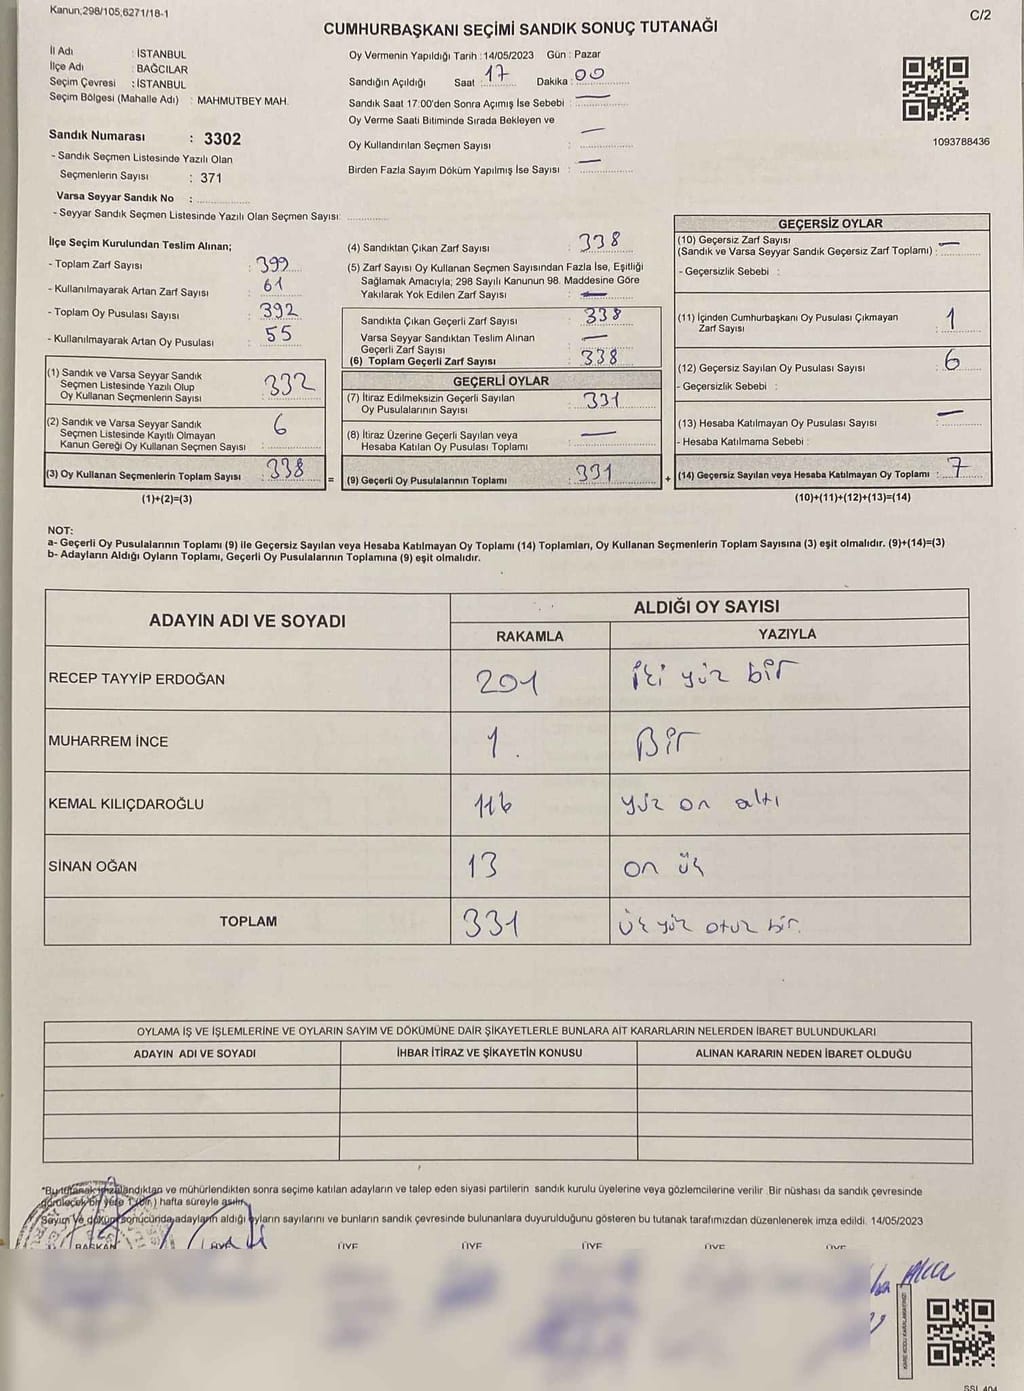 Kanun;298/105,6271/18-1
C/2
CUMHURBAŞKANI SEÇİMİ SANDIK SONUÇ TUTANAĞI
İl Adı : İSTANBUL
İlçe Adı : BAĞCILAR
Seçim Çevresi : İSTANBUL
Seçim Bölgesi (Mahalle Adı) : MAHMUTBEY MAH.
Sandık Numarası : 3302
- Sandık Seçmen Listesinde Yazılı Olan
Seçmenlerin Sayısı : 371
Varsa Seyyar Sandık No :
- Seyyar Sandık Seçmen Listesinde Yazılı Olan Seçmen Sayısı:
Oy Vermenin Yapıldığı Tarih : 14/05/2023 Gün : Pazar
Sandığın Açıldığı Saat : 17 Dakika : 00
Sandık Saat 17:00'den Sonra Açımış İse Sebebi : —
Oy Verme Saati Bitiminde Sırada Bekleyen ve
Oy Kullandırılan Seçmen Sayısı : —
Birden Fazla Sayım Döküm Yapılmış İse Sayısı : —
1093788436
İlçe Seçim Kurulundan Teslim Alınan;
- Toplam Zarf Sayısı : 399
- Kullanılmayarak Artan Zarf Sayısı : 61
- Toplam Oy Pusulası Sayısı : 392
- Kullanılmayarak Artan Oy Pusulası : 55
(1) Sandık ve Varsa Seyyar Sandık
Seçmen Listesinde Yazılı Olup
Oy Kullanan Seçmenlerin Sayısı : 332
(2) Sandık ve Varsa Seyyar Sandık
Seçmen Listesinde Kayıtlı Olmayan
Kanun Gereği Oy Kullanan Seçmen Sayısı : 6
(3) Oy Kullanan Seçmenlerin Toplam Sayısı : 338
(1)+(2)=(3)
(4) Sandıktan Çıkan Zarf Sayısı : 338
(5) Zarf Sayısı Oy Kullanan Seçmen Sayısından Fazla İse, Eşitliği
Sağlamak Amacıyla; 298 Sayılı Kanunun 98. Maddesine Göre
Yakılarak Yok Edilen Zarf Sayısı : —
Sandıkta Çıkan Geçerli Zarf Sayısı : 338
Varsa Seyyar Sandıktan Teslim Alınan
Geçerli Zarf Sayısı : —
(6) Toplam Geçerli Zarf Sayısı : 338
GEÇERLİ OYLAR
(7) İtiraz Edilmeksizin Geçerli Sayılan
Oy Pusulalarının Sayısı : 331
(8) İtiraz Üzerine Geçerli Sayılan veya
Hesaba Katılan Oy Pusulası Toplamı : —
= (9) Geçerli Oy Pusulalarının Toplamı : 331 +
GEÇERSİZ OYLAR
(10) Geçersiz Zarf Sayısı
(Sandık ve Varsa Seyyar Sandık Geçersiz Zarf Toplamı) : —
- Geçersizlik Sebebi :
(11) İçinden Cumhurbaşkanı Oy Pusulası Çıkmayan
Zarf Sayısı : 1
(12) Geçersiz Sayılan Oy Pusulası Sayısı : 6
- Geçersizlik Sebebi :
(13) Hesaba Katılmayan Oy Pusulası Sayısı : —
- Hesaba Katılmama Sebebi :
(14) Geçersiz Sayılan veya Hesaba Katılmayan Oy Toplamı : 7
(10)+(11)+(12)+(13)=(14)
NOT:
a- Geçerli Oy Pusulalarının Toplamı (9) ile Geçersiz Sayılan veya Hesaba Katılmayan Oy Toplamı (14) Toplamları, Oy Kullanan Seçmenlerin Toplam Sayısına (3) eşit olmalıdır. (9)+(14)=(3)
b- Adayların Aldığı Oyların Toplamı, Geçerli Oy Pusulalarının Toplamına (9) eşit olmalıdır.
ADAYIN ADI VE SOYADI ALDIĞI OY SAYISI
RAKAMLA YAZIYLA
RECEP TAYYİP ERDOĞAN 201 iki yüz bir
MUHARREM İNCE 1. Bir
KEMAL KILIÇDAROĞLU 116 yüz on altı
SİNAN OĞAN 13 on üç
TOPLAM 331 üç yüz otuz bir.
OYLAMA İŞ VE İŞLEMLERİNE VE OYLARIN SAYIM VE DÖKÜMÜNE DAİR ŞİKAYETLERLE BUNLARA AİT KARARLARIN NELERDEN İBARET BULUNDUKLARI
ADAYIN ADI VE SOYADI İHBAR İTİRAZ VE ŞİKAYETİN KONUSU ALINAN KARARIN NEDEN İBARET OLDUĞU
*Bu tutanak imzalandıktan ve mühürlendikten sonra seçime katılan adayların ve talep eden siyasi partilerin sandık kurulu üyelerine veya gözlemcilerine verilir. Bir nüshası da sandık çevresinde
görülecek bir yere 1 (bir) hafta süreyle asılır.
Sayım ve döküm sonucunda adayların aldığı oyların sayılarını ve bunların sandık çevresinde bulunanlara duyurulduğunu gösteren bu tutanak tarafımızdan düzenlenerek imza edildi. 14/05/2023
BAŞKAN ÜYE ÜYE ÜYE ÜYE ÜYE ÜYE
KARE KODU KARALAMAYINIZ!